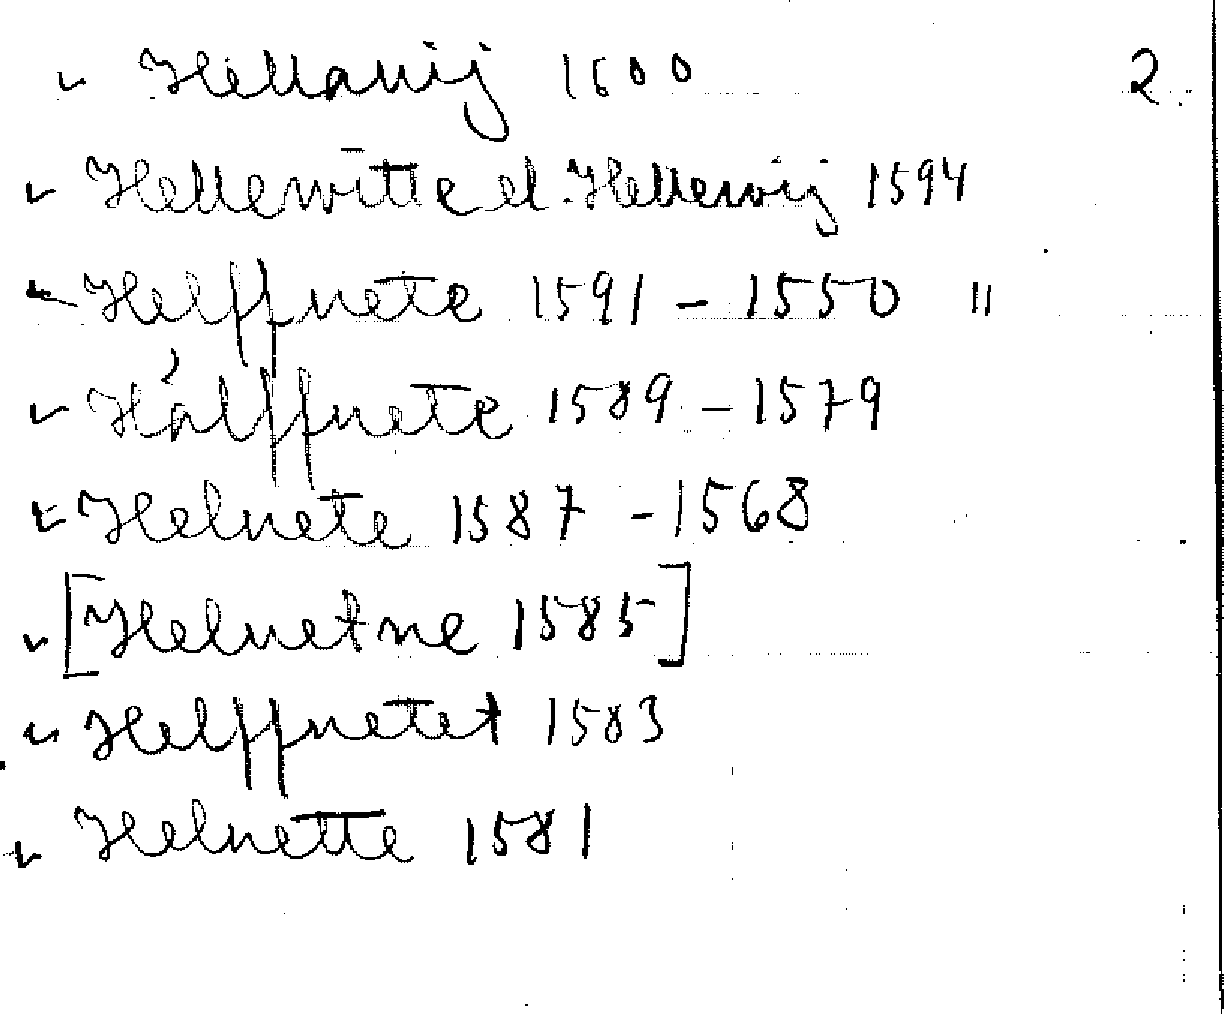 ✓ Hellanij 1600 2.
✓ Hellewitte el. Hellewij 1594
✓ Helffnete 1591 - 1550 "
✓ Hålffnete 1589 - 1579
✓ Helnete 1587 - 1568
✓ [Helnetne 1585]
✓ Helffnetet 1583
✓ Helnette 1581